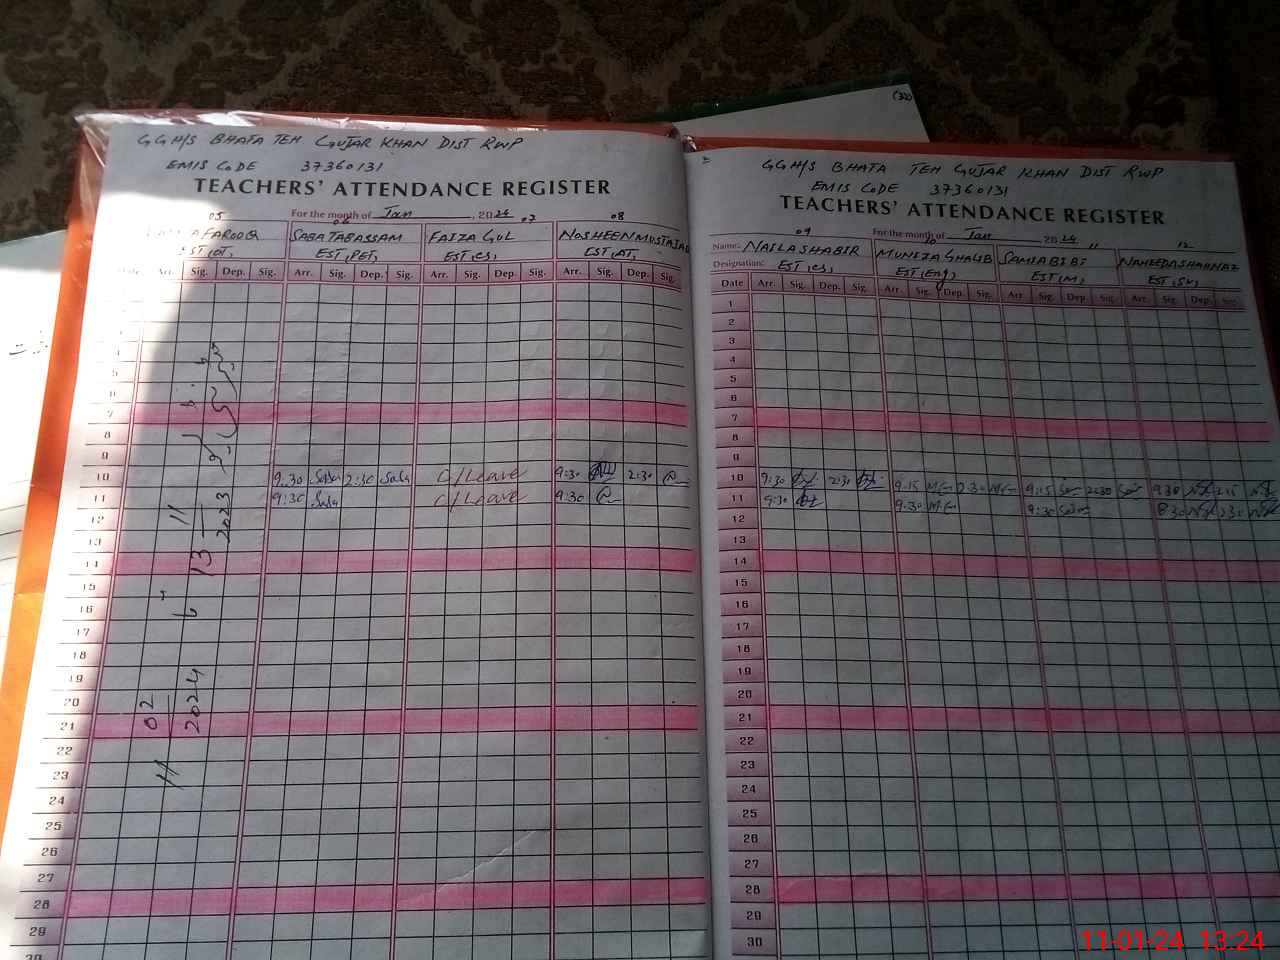 (32)
GGH/S BHATA TEH GUJAR KHAN DIST RWP
EMIS CODE 37360131
TEACHERS' ATTENDANCE REGISTER
For the month of Jan, 2024
05 06 07 08
FAROOQ SABA TABASSAM FAIZA GUL NOSHEEN MUSTAJAB
EST, PET, EST, CS, EST, AT,
Date Arr. Sig. Dep. Sig. Arr. Sig. Dep. Sig. Arr. Sig. Dep. Sig. Arr. Sig. Dep. Sig.
4
5
6
7
8
9
10 9.30 Saba 2:30 Saba C/Leave 9:30 2:30
11 9:30 Saba C/Leave 9:30
12
13
14
15
16
17
18
19
20
21
22
23
24
25
26
27
28
29
30
13 11 2023
11 02 2024
GGH/S BHATA TEH GUJAR KHAN DIST RWP
EMIS CODE 37360131
TEACHERS' ATTENDANCE REGISTER
For the month of Jan 2024
09 10 11 12
Name: NAILA SHABIR MUNIZA GHALIB SAMIA BIBI NAHEEDA SHAHNAZ
Designation: EST, CS, EST (Eng) EST, M, EST, SV,
Date Arr. Sig. Dep. Sig. Arr. Sig. Dep. Sig. Arr Sig. Dep. Sig. Arr. Sig. Dep. Sig.
1
2
3
4
5
6
7
8
9
10 9:30 2:30 9.15 M.G 2.30 M.G 9:15 2:30 9.30 2.15
11 9:30 9.30 M.G 9:30 8:30 2:30
12
13
14
15
16
17
18
19
20
21
22
23
24
25
26
27
28
29
30
11-01-24 13:24